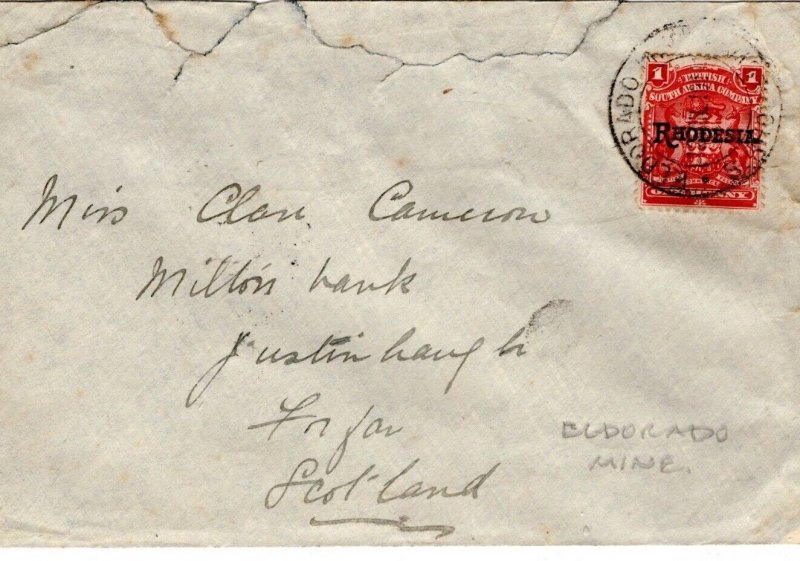 1 BRITISH 1
SOUTH AFRICA COMPANY
RHODESIA
ELDORADO
Miss Clare Cameron
Milton bank
Justinhaugh
Forfar
Scotland
ELDORADO
MINE.